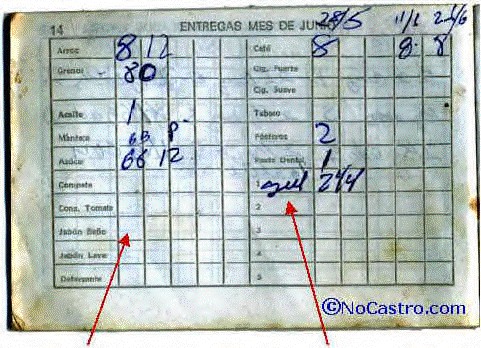 14 ENTREGAS MES DE JUNIO 28/5
Arroz 8 12 Café 8 8 8
Granos 80 Cig. Fuerte
Cig. Suave
Aceite 1 Tabaco
Manteca P. Fósforos 2
Azúcar 66 12 Pasta Dental 1
Compota 1 azul 24/4
Cons. Tomate 2
Jabón Baño 3
Jabón Lavar 4
Detergente 5
©NoCastro.com